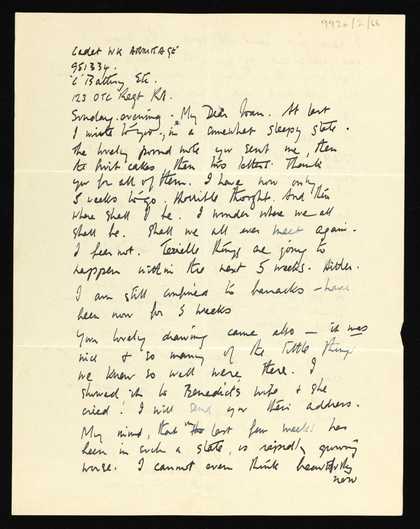 9920/2/66
Cadet WK ARMITAGE
951334.
'C' Battery Etc.
123 OTC Regt RA.
Sunday evening. My Dear Joan. At last
I write to you, in a somewhat sleepy state.
The lovely pound note you sent me, then
the fruit cakes, then two letters. Thank
you for all of them. I have now only
5 weeks to go. Horrible thought. And then
where shall I be. I wonder where we all
shall be. Shall we all ever meet again.
I fear not. Terrible things are going to
happen within the next 5 weeks. Hitler.
I am still confined to barracks – have
been now for 5 weeks
Your lovely drawing came also – it was
nice & so many of the little things
we know so well were there. I
showed it to Benedict's wife & she
cried! I will send you their address.
My mind, that in the last few weeks has
been in such a state, is rapidly growing
worse. I cannot even think beautifully
now